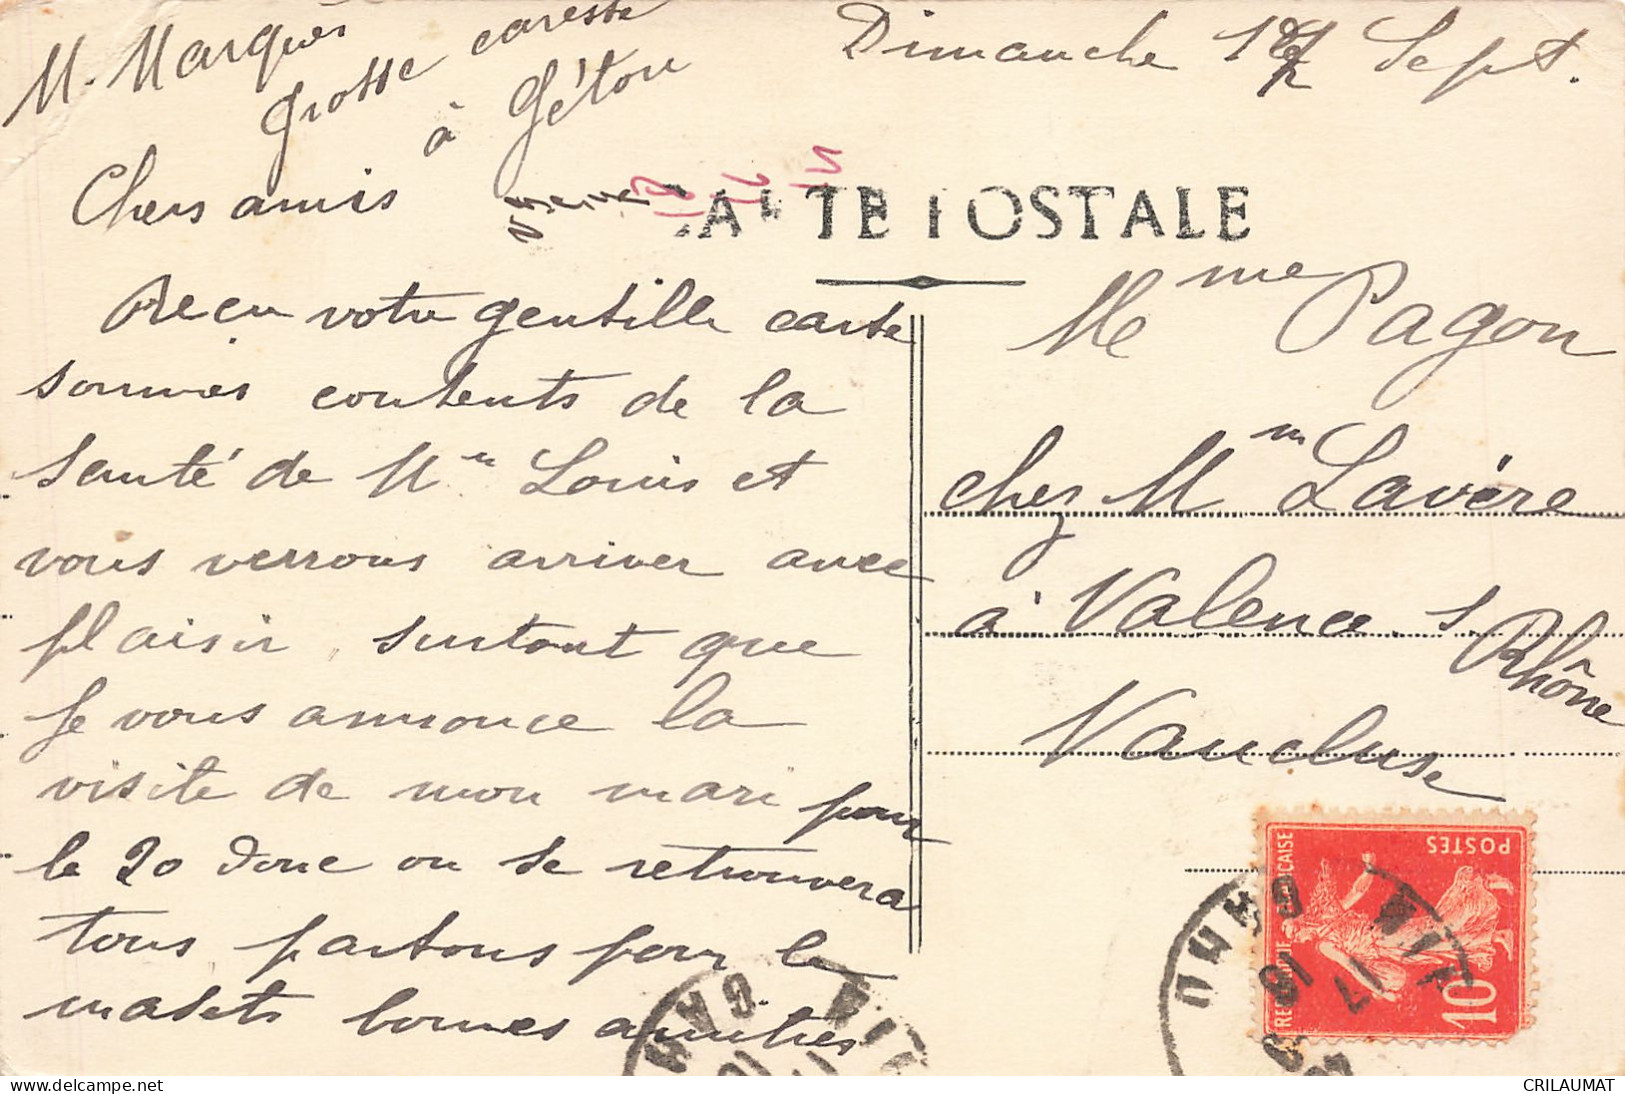 M. Marquès
Grosse caresse
à Gétou
Dimanche 17 Sept.
CARTE POSTALE
Chers amis
Recu votre gentille carte
sommes contents de la
santé de Mr Louis et
vous verrons arriver avec
plaisir, surtout que
je vous annonce la
visite de mon mari pour
le 20 donc on se retrouvera
tous partons pour le
masets bonnes amitiés
Mme Pagon
chez Mm Lavère
à Valence s/Rhône
Vaucluse
POSTES
10
CRILAUMAT